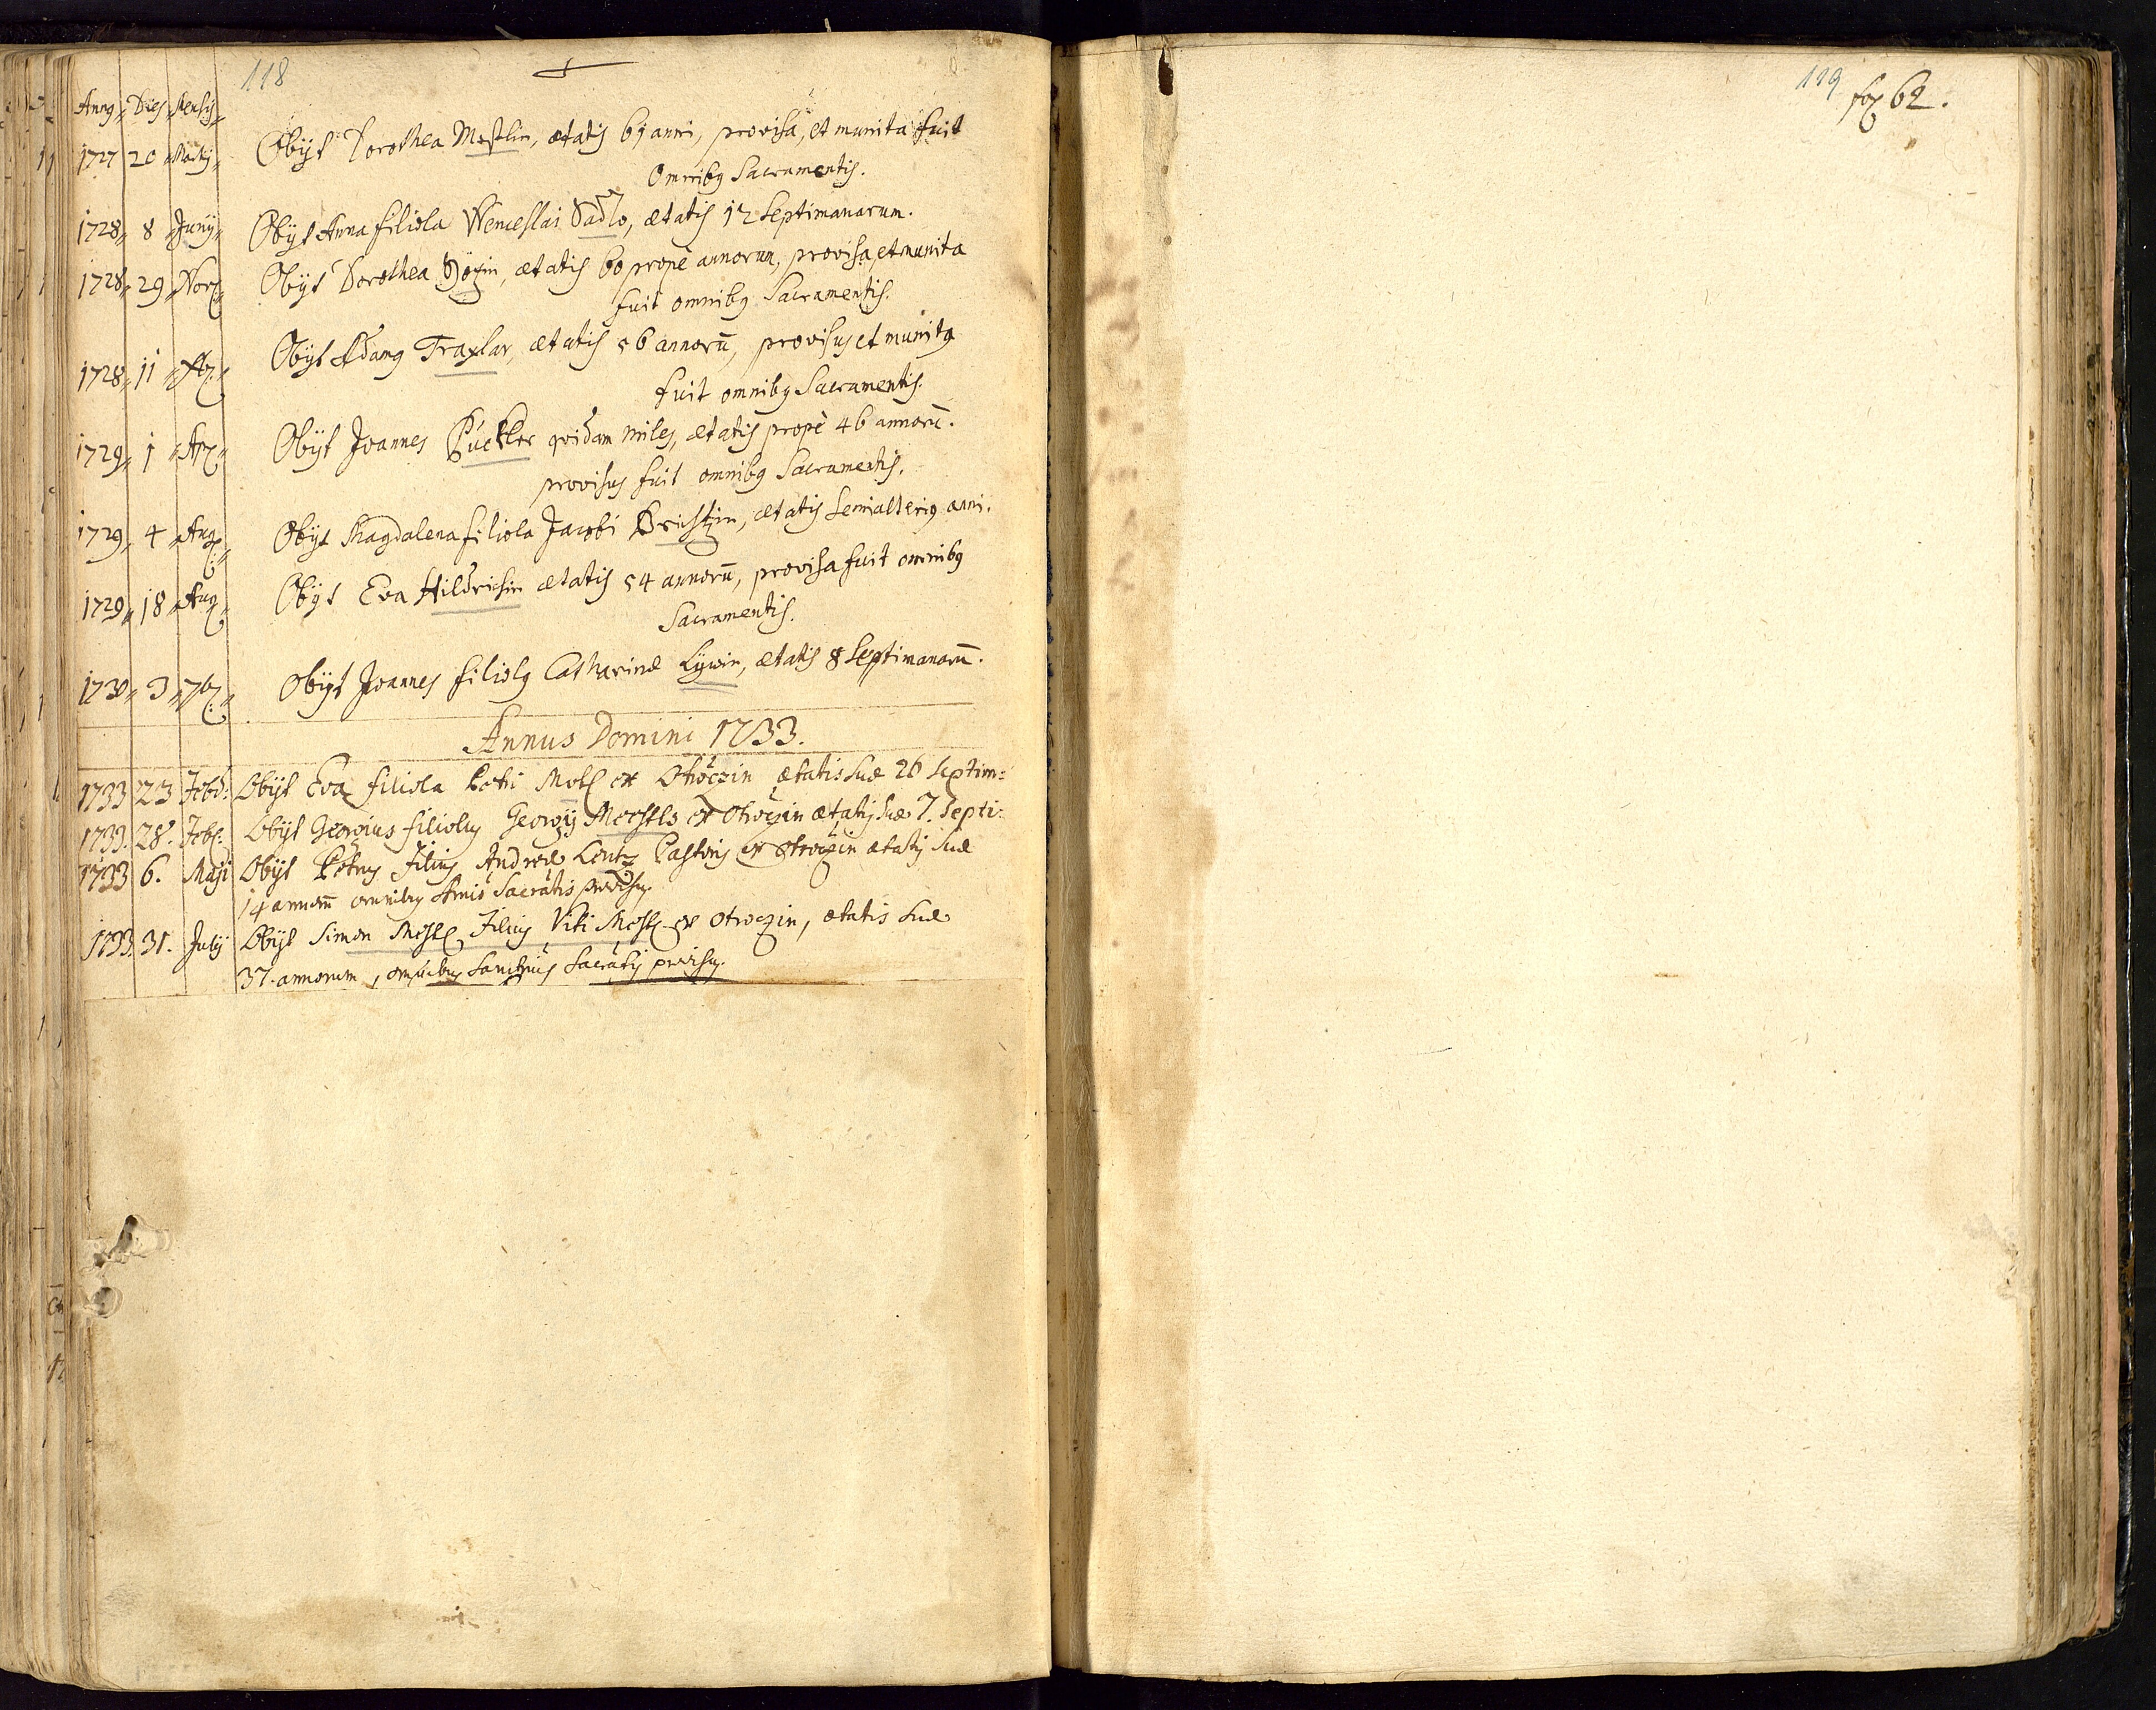 118
Annꝰ Dies Mensis
1727 20 Martij Obijt Dorothea Mestlin, ætatis 61 anni, provisa, et munita fuit
Omnibꝰ Sacramentis.
1728 8 Junij Obijt Anna filiola Wenceslai Sadlo, ætatis 12 Septimanarum.
1728 29 Obijt Dorothea ætatis 60 propè annorum, provisa, et munita
fuit omnibꝰ Sacramentis.
1728 11 Obijt Adamꝰ Traxlar, ætatis 56 annorū, provisus et munitꝰ
fuit omnibꝰ Sacramentis.
1729 1 Obijt Joannes Pückler qvidam miles, ætatis propè 46 annorū.
provisus fuit omnibꝰ Sacramentis.
1729 4 Aug Obijt Magdalena filiola Jacobi ætatis Semialteriꝰ anni.
1729 18 Aug Obijt Eva Hildrichin ætatis 54 annorū, provisa fuit omnibꝰ
Sacramentis.
1730 3 7b Obijt Joannes filiolꝰ Catharinæ Lywin, ætatis 8 Septimanarū.
Annus Domini 1733.
1733 23 Feb: Obijt Eva filiola Petri ex Otroczin ætatis suæ 26 septim:
1733. 28. Feb: Obijt Georgius filiolus Georgij ex Otroczin ætatis suæ 7. septi:
1733 6. Maji Obijt Petrus Filius Andreæ Lentz Pastoris ex Otroczin ætatis suæ
14 annorū omnibus Sacratis provisus.
1733. 31. July Obijt Simon Filius Viti ex Otroczin, ætatis suæ
37. annorum, omnibus provisus.
119
fol 62.